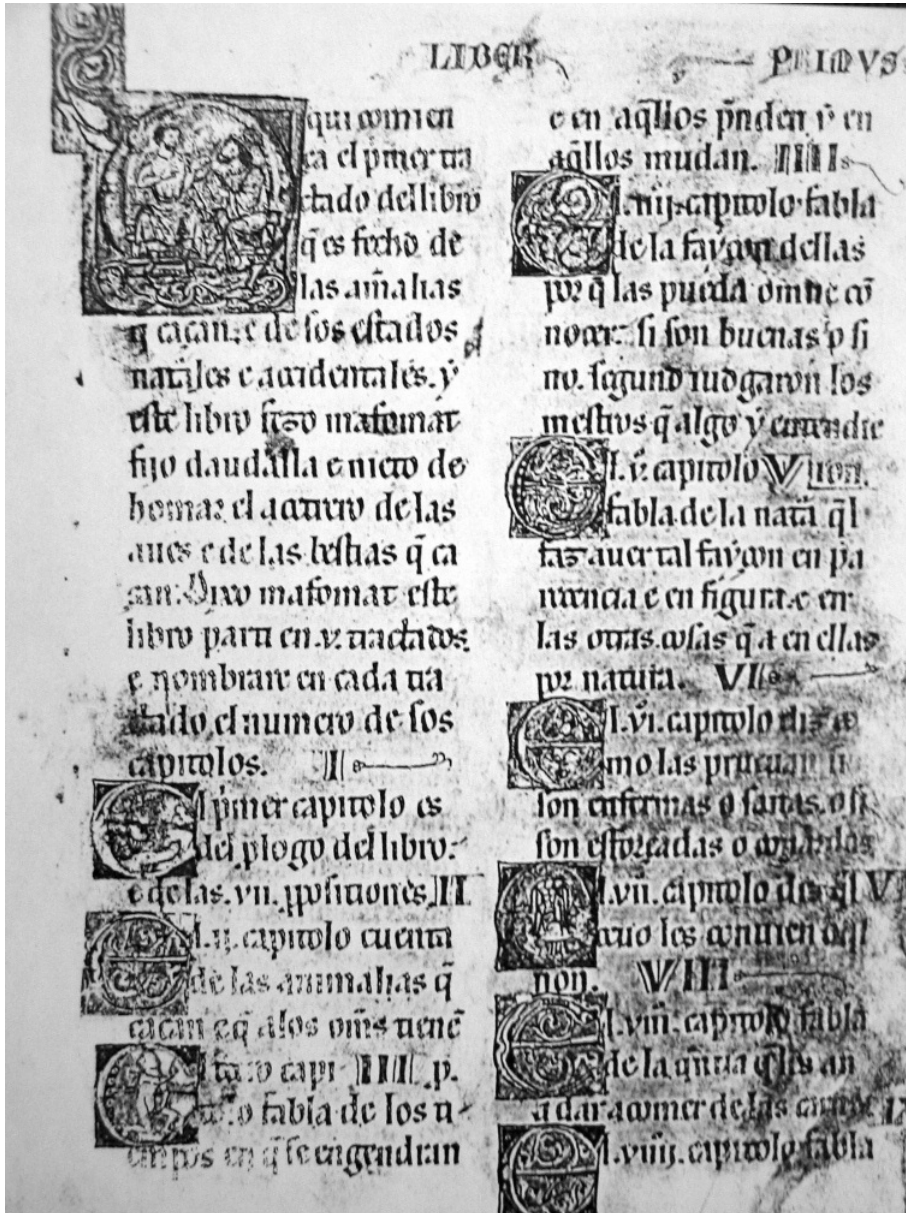 LIBER PRIMVS
qui comien
ça el p̄mer tra
ctado del libro
q̄ es fecho de
las am̄alias
q̄ caçan. e de sos estados
nat̃les e accidentales. ẏ
este libro fizo mafomat
fijo daudalla e nieto de
homar el acetrero de las
aues e de las bestias q̄ ca
çan. Dixo mafomat este
libro parti en .v. tractados
e nombrare en cada tra
ctado el numero de sos
capitolos. I
El p̄mer capitolo es
del p̱logo del libro.
e de las .vii. p̱positiones. II
El .ij. capitolo cuenta
de las animalias q̄
caçan e q̄ a los om̄s tienē
capi III p.
fabla de los ti
en q̄ se engendran
e en aq̄llos p̄nden ẏ en
aq̄llos mudan. IIII
El .iiij. capitolo fabla
de la fayçon dellas
por q̄ las pueda omne co
nocer. si son buenas o si
no. segund iudgaron los
mestros q̄ algo ẏ entendie
El .v. capitolo V ron.
fabla de la nat̃a q̄l
faz auer tal fayçon en pa
recencia e en figura. e en
las otras cosas q̄ a en ellas
por natura. VI
El .vi. capitolo diz co
mo las prueuan
son enfermas o sanas. o si
son esforçadas o couardas
El .vii. capitolo q̄l VI
les conuien o q̄l
non. VIII
El .viii. capitolo fabla
de la q̄ les an
a dar a comer de las carnes IX
El .viiij. capitolo fabla